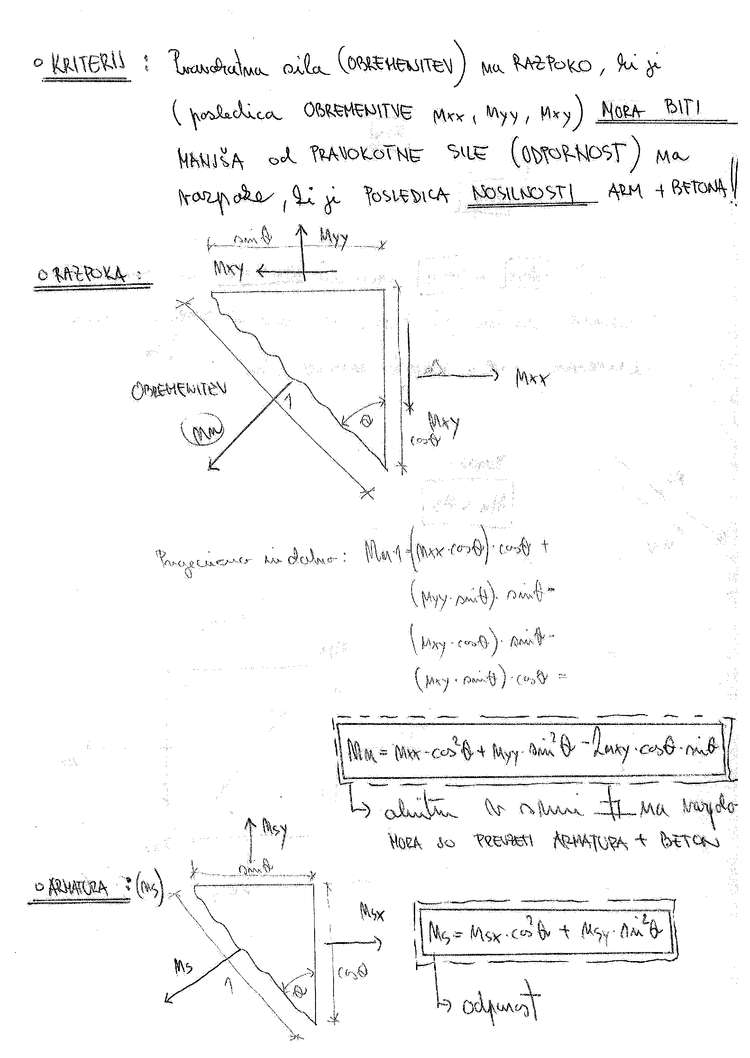 ° KRITERIJ : Pravokotna sila (OBREMENITEV) na RAZPOKO, ki ji
(posledica OBREMENITVE Mxx, Myy, Mxy) MORA BITI
MANJŠA od PRAVOKOTNE SILE (ODPORNOST) na
razpoke, ki ji POSLEDICA NOSILNOSTI ARM + BETONA!!
sinθ Myy
Mxy
° RAZPOKA :
Mxx
OBREMENITEV
1
θ
Mxy
cosθ
Mn
in delno: Mn·1=(Mxx·cosθ)·cosθ +
(Myy·sinθ)·sinθ-
(Mxy·cosθ)·sinθ-
(Mxy·sinθ)·cosθ =
Mn = Mxx·cos²θ + Myy·sin²θ - 2Mxy·cosθ·sinθ
↳ v smeri ⊥ na
MORA JO PREVZETI ARMATURA + BETON
Msy
sinθ
° ARMATURA : (Ms)
Msx
Ms
1
θ
cosθ
Ms = Msx·cos²θ + Msy·sin²θ
↳ odpornost